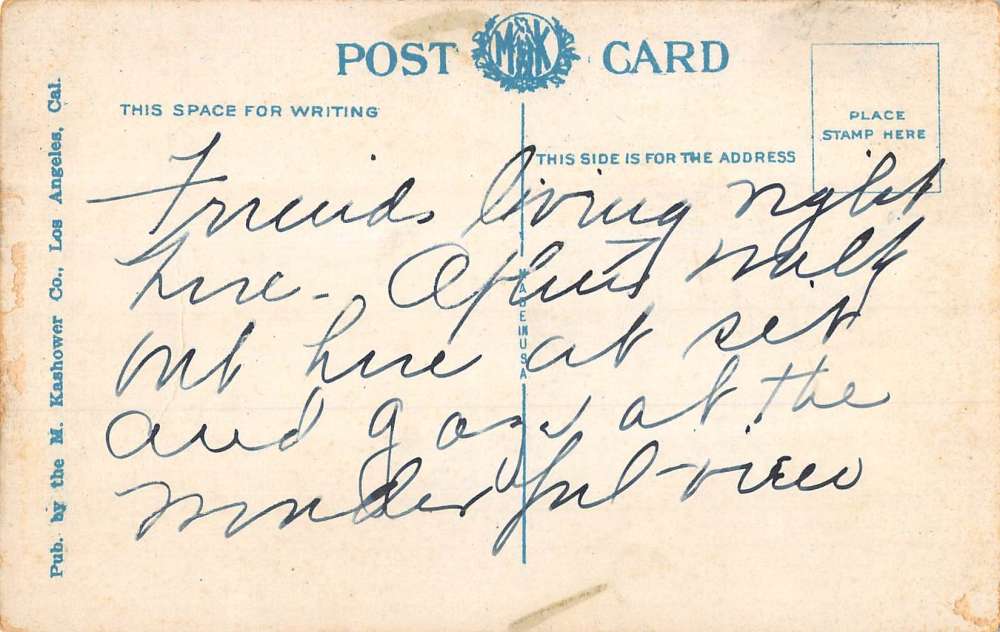 POST CARD
THIS SPACE FOR WRITING
THIS SIDE IS FOR THE ADDRESS
PLACE
STAMP HERE
Friends living right
here - Often walk
out here at
and gaze at the
wonderful view
MADE IN USA
Pub. by the M. Kashower Co., Los Angeles, Cal.